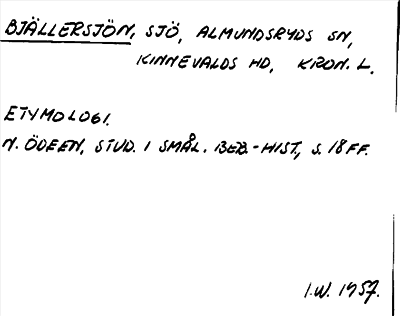 BJÄLLERSJÖN, SJÖ, ALMUNDSRYDS SN,
KINNEVALDS HD, KRON. L.
ETYMOLOGI.
N. ÖDEEN, STUD. I SMÅL. BEB.-HIST., S. 18 FF.
I.W. 1957.